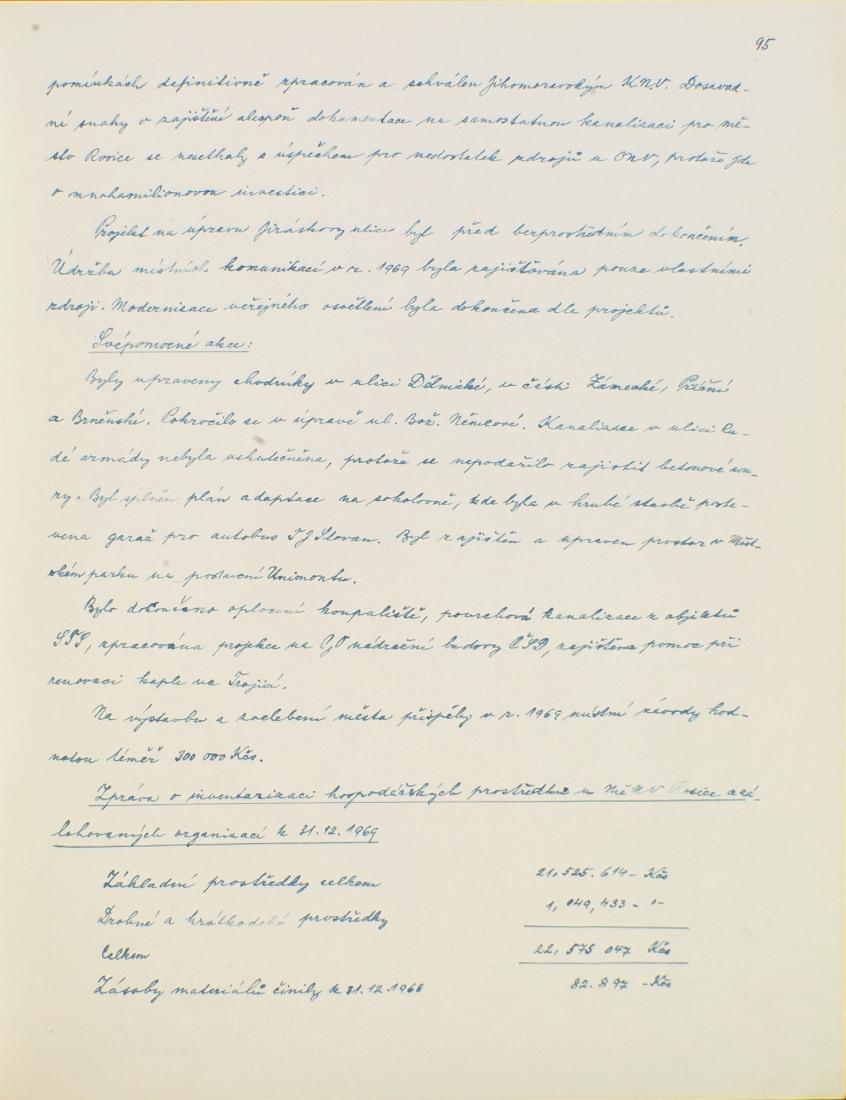 95
pomínkách definitivně zpracován a schválen Jihomoravským KNV. Dosavad-
ní snahy o zajištění alespoň dokumentace na samostatnou kanalizaci pro mě-
sto Rosice se nesetkaly s úspěchem pro nedostatek zdrojů u ONV, protože jde
o mnohamilionovou investici.
Projekt na úpravu Jiráskovy ulice byl před bezprostředním dokončením.
Údržba místních komunikací v r. 1969 byla zajišťována pouze vlastními
zdroji. Modernisace veřejného osvětlení byla dokončena dle projektů.
Svépomocné akce:
Byly upraveny chodníky v ulici Dělnické, v části Zámecké, Příční
a Brněnské. Pokročilo se v úpravě ul. Bož. Němcové. Kanalizace v ulici Ru-
dé armády nebyla uskutečněna, protože se nepodařilo zajistit betonové rou-
ry. Byl splněn plán adaptace na sokolovně, kde byla v hrubé stavbě posta-
vena garáž pro autobus TJ Slovan. Byl zajištěn a upraven prostor v Měst-
ském parku na postavení Unimontu.
Bylo dokončeno oplocení koupaliště, povrchová kanalizace z objektů
SPS, zpracována projekce na GO nádražní budovy ČSD, zajištěna pomoc při
renovaci kaple na Trojici.
Na výstavbu a zvelebení města přispěly v r. 1969 místní závody hod-
notou téměř 300 000 Kčs.
Zpráva o inventarizaci hospodářských prostředků u MěNV Rosice a zá-
lohovaných organisací k 31.12.1969
Základní prostředky celkem 21,525.614 - Kčs
Drobné a krátkodobé prostředky 1,049,433 - "-
Celkem 22,575 047 Kčs
Zásoby materiálů činily k 31.12.1968 82.897 - Kčs